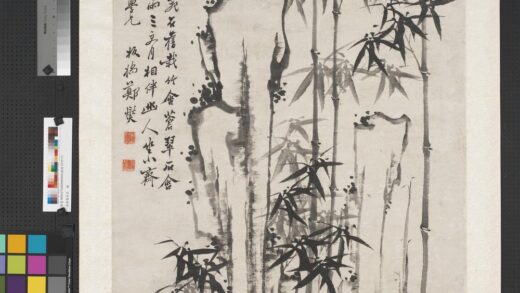 石舊栽竹含蒼翠石含
雨三更月相伴幽人坐小齋
學兄 板橋鄭燮